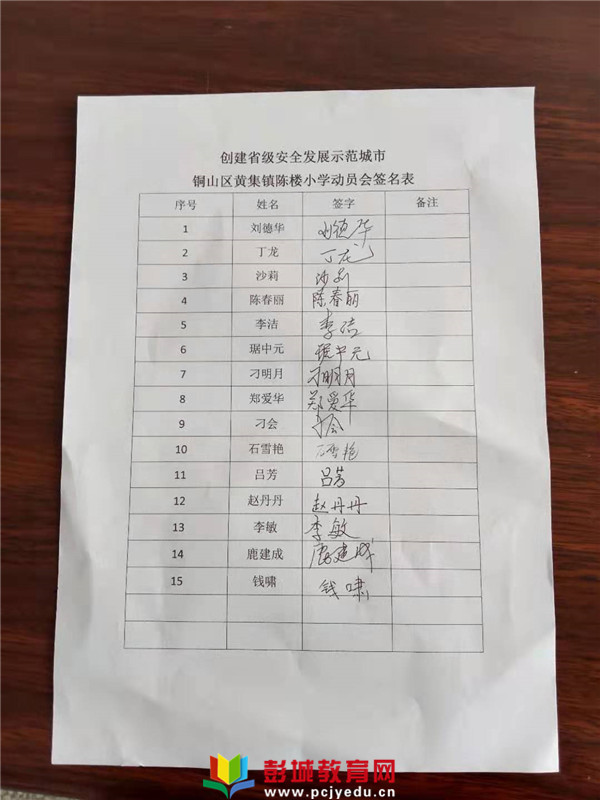 创建省级安全发展示范城市
铜山区黄集镇陈楼小学动员会签名表
序号 姓名 签字 备注
1 刘德华 刘德华
2 丁龙 丁龙
3 沙莉 沙莉
4 陈春丽 陈春丽
5 李洁 李洁
6 琚中元 琚中元
7 刁明月 刁明月
8 郑爱华 郑爱华
9 刁会 刁会
10 石雪艳 石雪艳
11 吕芳 吕芳
12 赵丹丹 赵丹丹
13 李敏 李敏
14 鹿建成 鹿建成
15 钱啸 钱啸
彭城教育网
www.pcjyedu.cn